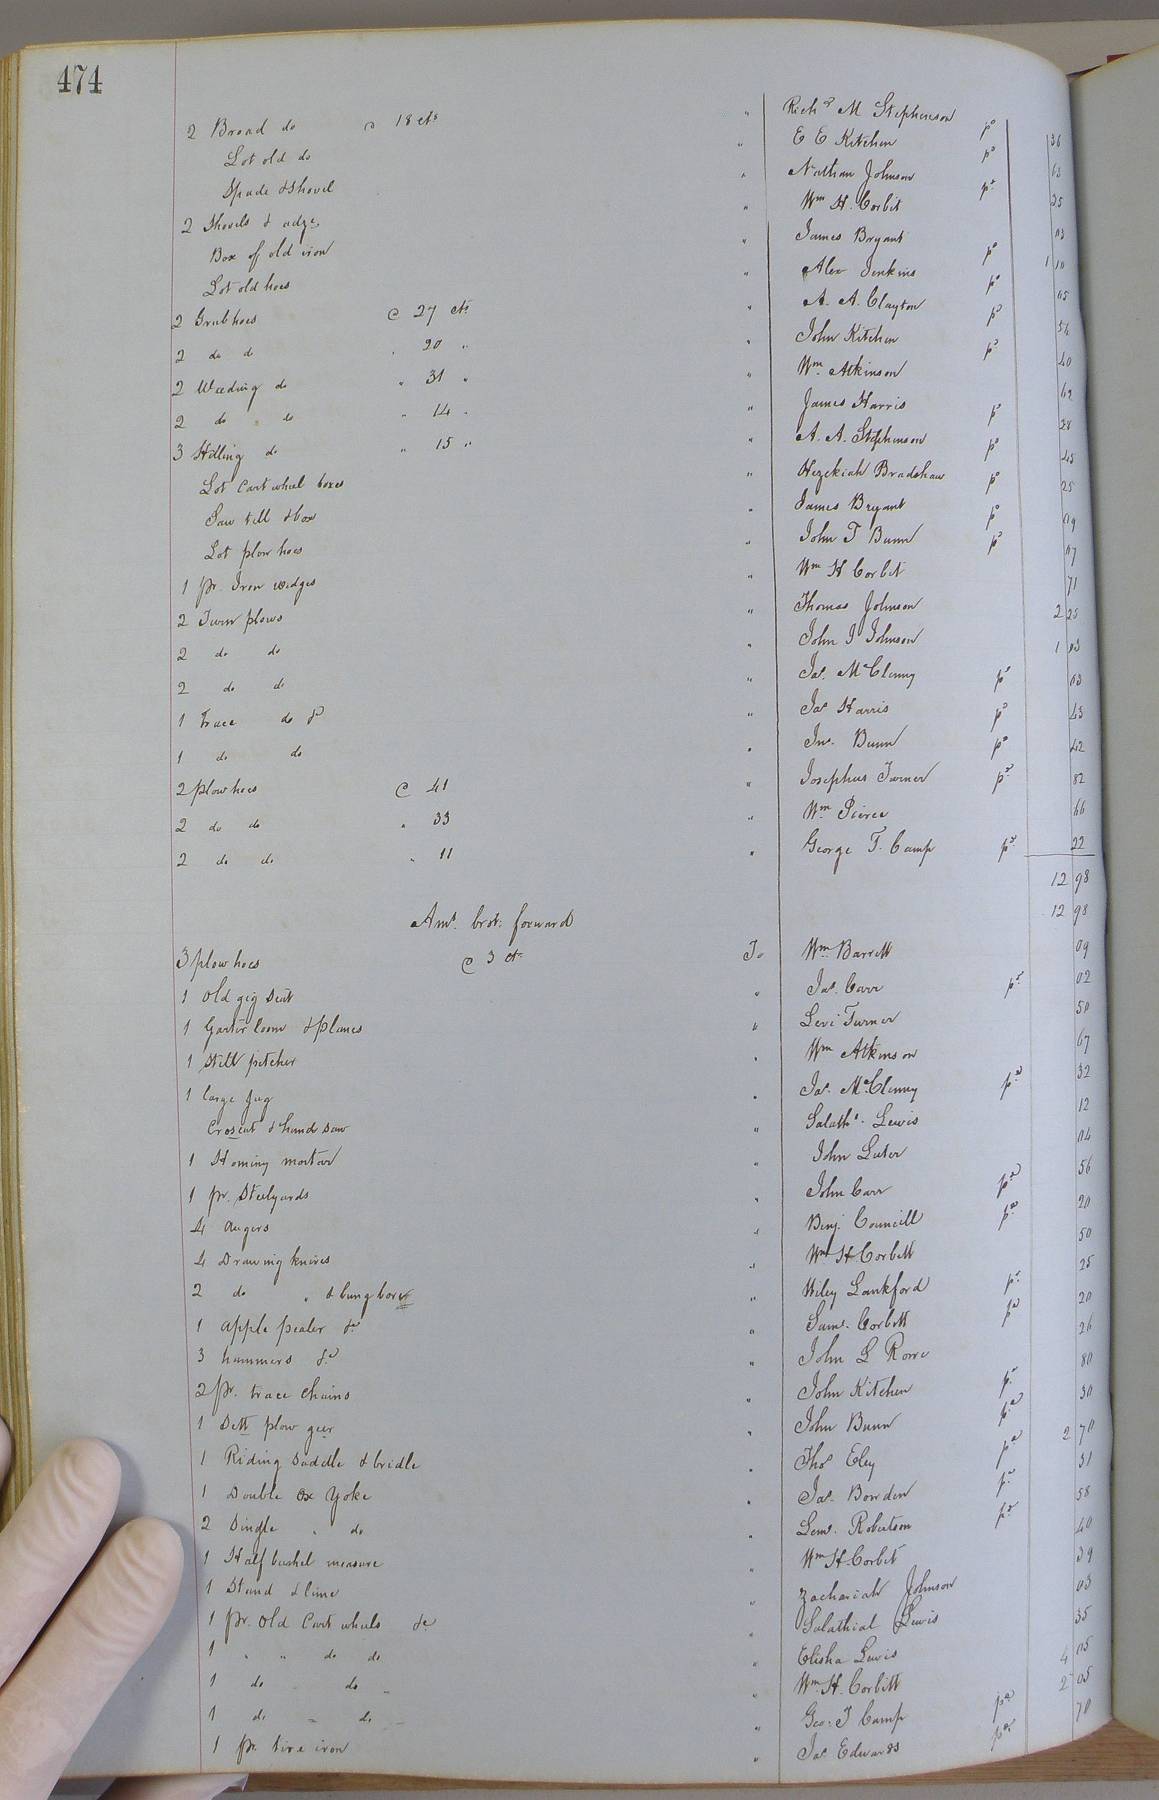 474
2 Broad do @ 18 cts " Richd M Stephenson pd 36
Lot old do " E E Kitchen pd 63
Spade & Shovel " Nathan Johnson pd 25
2 Shovels & adze " Wm H. Corbit 03
Box of old iron " James Bryant pd 1 10
Lot old hoes " Alex Jenkins pd 05
2 Grub hoes @ 27 cts " A. A. Clayton pd 54
2 do do " 20 " " John Kitchen pd 40
2 Weeding do " 31 " " Wm Atkinson 62
2 do " do " 14 " " James Harris pd 28
3 Hilling do " 15 " " A. A. Stephenson pd 45
Lot Cart wheel boxes " Hezekiah Bradshaw pd 25
Saw till & box " James Bryant pd 09
Lot plow hoes " John T Bunn pd 07
1 pr. Iron wedges " Wm H Corbit 71
2 Turn plows " Thomas Johnson 2 25
2 do do " John J Johnson 1 03
2 do do " Jas. McClenny pd 03
1 Trace do &c " Jas Harris pd 43
1 do do " Jno. Bunn pd 42
2 plow hoes @ 41 " Josephus Turner pd 82
2 do do " 33 " Wm Pierce 66
2 do do " 11 " George T. Camp pd 22
12 98
Amt. brot. forward 12 98
3 plow hoes @ 3 cts To Wm Barrett 09
1 old gig Seat " Jas. Carr pd 02
1 Garter loom & planes " Levi Turner 50
1 Still pitcher " Wm Atkinson 67
1 large Jug " Jas. McClenny pd 32
Croscut & hand saw " Salathl. Lewis 12
1 Hominy mortar " John Luter 04
1 pr. Steelyards " John Carr pd 56
4 augers " Benj. Councill pd 20
4 Drawing knives " Wm H. Corbett 50
2 do " & bung borer " Wiley Lankford pd 25
1 apple pealer &c " Saml. Corbett pd 20
3 hammers &c " John L Rowe 26
2 pr. trace chains " John Kitchen pd 80
1 Sett plow geer " John Bunn pd 30
1 Riding Saddle & bridle " Thos Eley pd 2 70
1 Double Ox Yoke " Jas. Bowden pd 31
2 Single " do " Leml. Robertson pd 58
1 Half bushel measure " Wm H Corbit 40
1 Stand & lime " Zachariah Johnson 39
1 pr. old Cart wheels &c " Salathial Lewis 03
1 " " do do " Elisha Lewis 35
1 do " do " " Wm. H. Corbitt 4 05
1 do " do " " Geo: T Camp pd 2 05
1 pr. tire iron " Jas Edwards pd 70